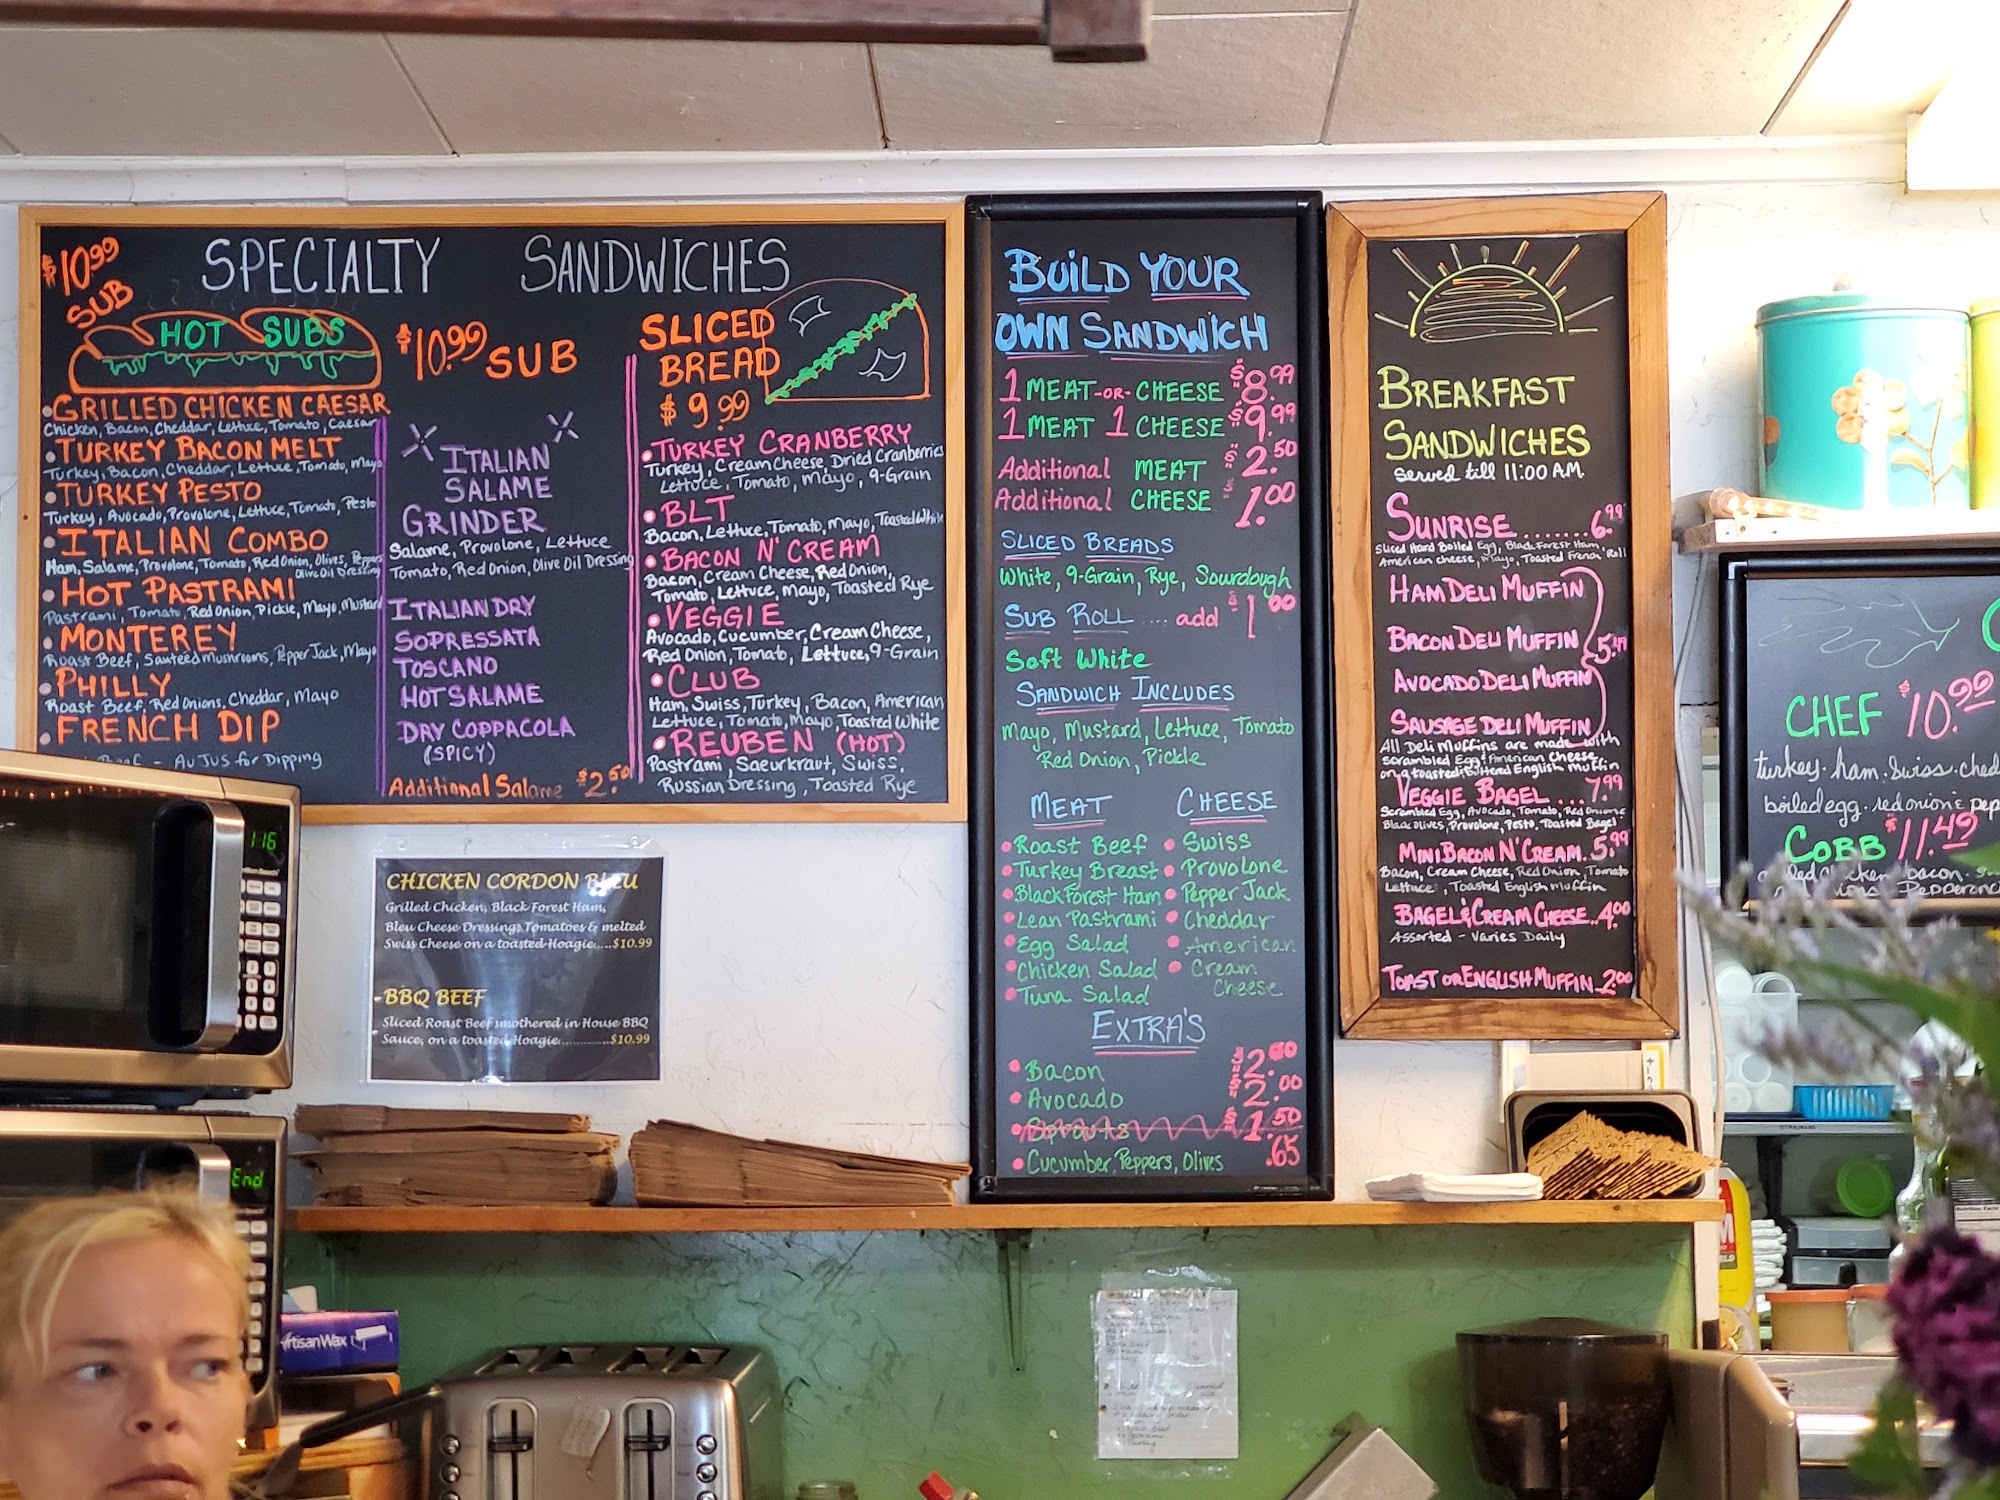 $10.99
SUB
SPECIALTY SANDWICHES
HOT SUBS
• GRILLED CHICKEN CAESAR
Chicken, Bacon, Cheddar, Lettuce, Tomato, Caesar
• TURKEY BACON MELT
Turkey, Bacon, Cheddar, Lettuce, Tomato, Mayo
• TURKEY PESTO
Turkey, Avocado, Provolone, Lettuce, Tomato, Pesto
• ITALIAN COMBO
Ham, Salame, Provolone, Tomato, Red Onion, Olives, Peppers
Olive Oil Dressing
• HOT PASTRAMI
Pastrami, Tomato, Red Onion, Pickle, Mayo, Mustard
• MONTEREY
Roast Beef, Sauteed Mushrooms, Pepper Jack, Mayo
• PHILLY
Roast Beef, Red Onions, Cheddar, Mayo
• FRENCH DIP
Beef - Au Jus for Dipping
$10.99 SUB
ITALIAN
SALAME
GRINDER
Salame, Provolone, Lettuce
Tomato, Red Onion, Olive Oil Dressing
ITALIAN DRY
SOPRESSATA
TOSCANO
HOT SALAME
DRY COPPACOLA
(SPICY)
Additional Salame $2.50
SLICED
BREAD
$9.99
• TURKEY CRANBERRY
Turkey, Cream Cheese, Dried Cranberries
Lettuce, Tomato, Mayo, 9-Grain
• BLT
Bacon, Lettuce, Tomato, Mayo, Toasted White
• BACON N' CREAM
Bacon, Cream Cheese, Red Onion,
Tomato, Lettuce, Mayo, Toasted Rye
• VEGGIE
Avocado, Cucumber, Cream Cheese,
Red Onion, Tomato, Lettuce, 9-Grain
• CLUB
Ham, Swiss, Turkey, Bacon, American
Lettuce, Tomato, Mayo, Toasted White
• REUBEN (HOT)
Pastrami, Saeurkraut, Swiss,
Russian Dressing, Toasted Rye
CHICKEN CORDON BLEU
Grilled Chicken, Black Forest Ham,
Bleu Cheese Dressing, Tomatoes & melted
Swiss Cheese on a toasted Hoagie.....$10.99
BBQ BEEF
Sliced Roast Beef smothered in House BBQ
Sauce, on a toasted Hoagie.............$10.99
BUILD YOUR
OWN SANDWICH
1 MEAT -OR- CHEESE $8.99
1 MEAT 1 CHEESE $9.99
Additional MEAT $2.50
Additional CHEESE $1.00
SLICED BREADS
White, 9-Grain, Rye, Sourdough
SUB ROLL .... add $1.00
Soft White
SANDWICH INCLUDES
Mayo, Mustard, Lettuce, Tomato
Red Onion, Pickle
MEAT CHEESE
• Roast Beef • Swiss
• Turkey Breast • Provolone
• Black Forest Ham • Pepper Jack
• Lean Pastrami • Cheddar
• Egg Salad • American
• Chicken Salad • Cream
• Tuna Salad Cheese
EXTRA'S
• Bacon $2.50
• Avocado $2.00
• Sprouts $1.50
• Cucumber, Peppers, Olives .65
BREAKFAST
SANDWICHES
served till 11:00 AM.
SUNRISE ........ 6.99
Sliced Hard Boiled Egg, Black Forest Ham,
American cheese, Mayo, Toasted French Roll
HAM DELI MUFFIN
BACON DELI MUFFIN 5.49
AVOCADO DELI MUFFIN
SAUSAGE DELI MUFFIN
All Deli Muffins are made with
scrambled Egg & American Cheese
on a toasted Buttered English Muffin
VEGGIE BAGEL ... 7.99
Scrambled Egg, Avocado, Tomato, Red Onion &
Black Olives, Provolone, Pesto, Toasted Bagel
MINI BACON N' CREAM. 5.99
Bacon, Cream Cheese, Red Onion, Tomato
Lettuce, Toasted English Muffin
BAGEL & CREAM CHEESE.. 4.00
Assorted - Varies Daily
TOAST OR ENGLISH MUFFIN .. 2.00
CHEF $10.99
turkey. ham. Swiss. ched
boiled egg. red onion & pep
COBB $11.49
bacon.
Pepperonc
1:16
End
ArtisanWax